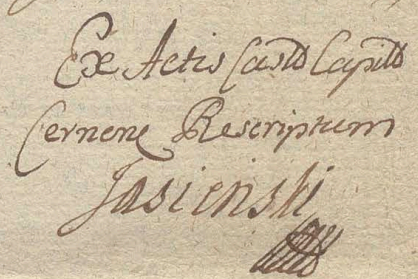 Ex Actis Castrb Capitlb
Cernene Rescriptum
Jasienski